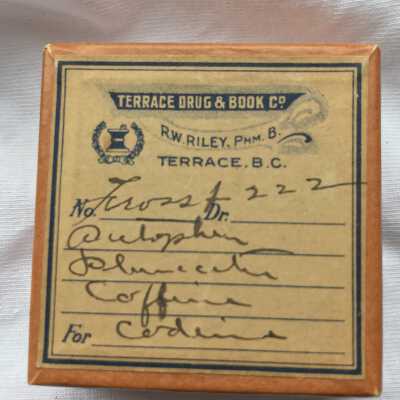 TERRACE DRUG & BOOK CO
R.W. RILEY, PHM. B.
TERRACE, B.C.
No. Frosst 222 Dr.
Coffeine
For codeine